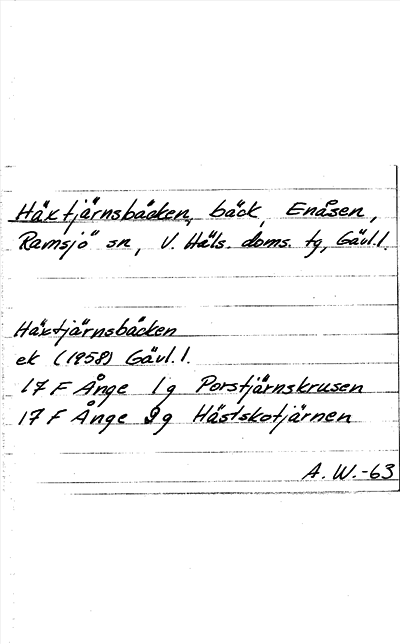 Häxtjärnsbäcken, bäck, Enåsen,
Ramsjö sn, V. Häls. doms. tg, Gävl.l.
Häxtjärnsbäcken
ek (1958) Gävl.l.
17 F Ånge 1g Porstjärnskrusen
17 F Ånge 2g Hästskotjärnen
A.W.-63